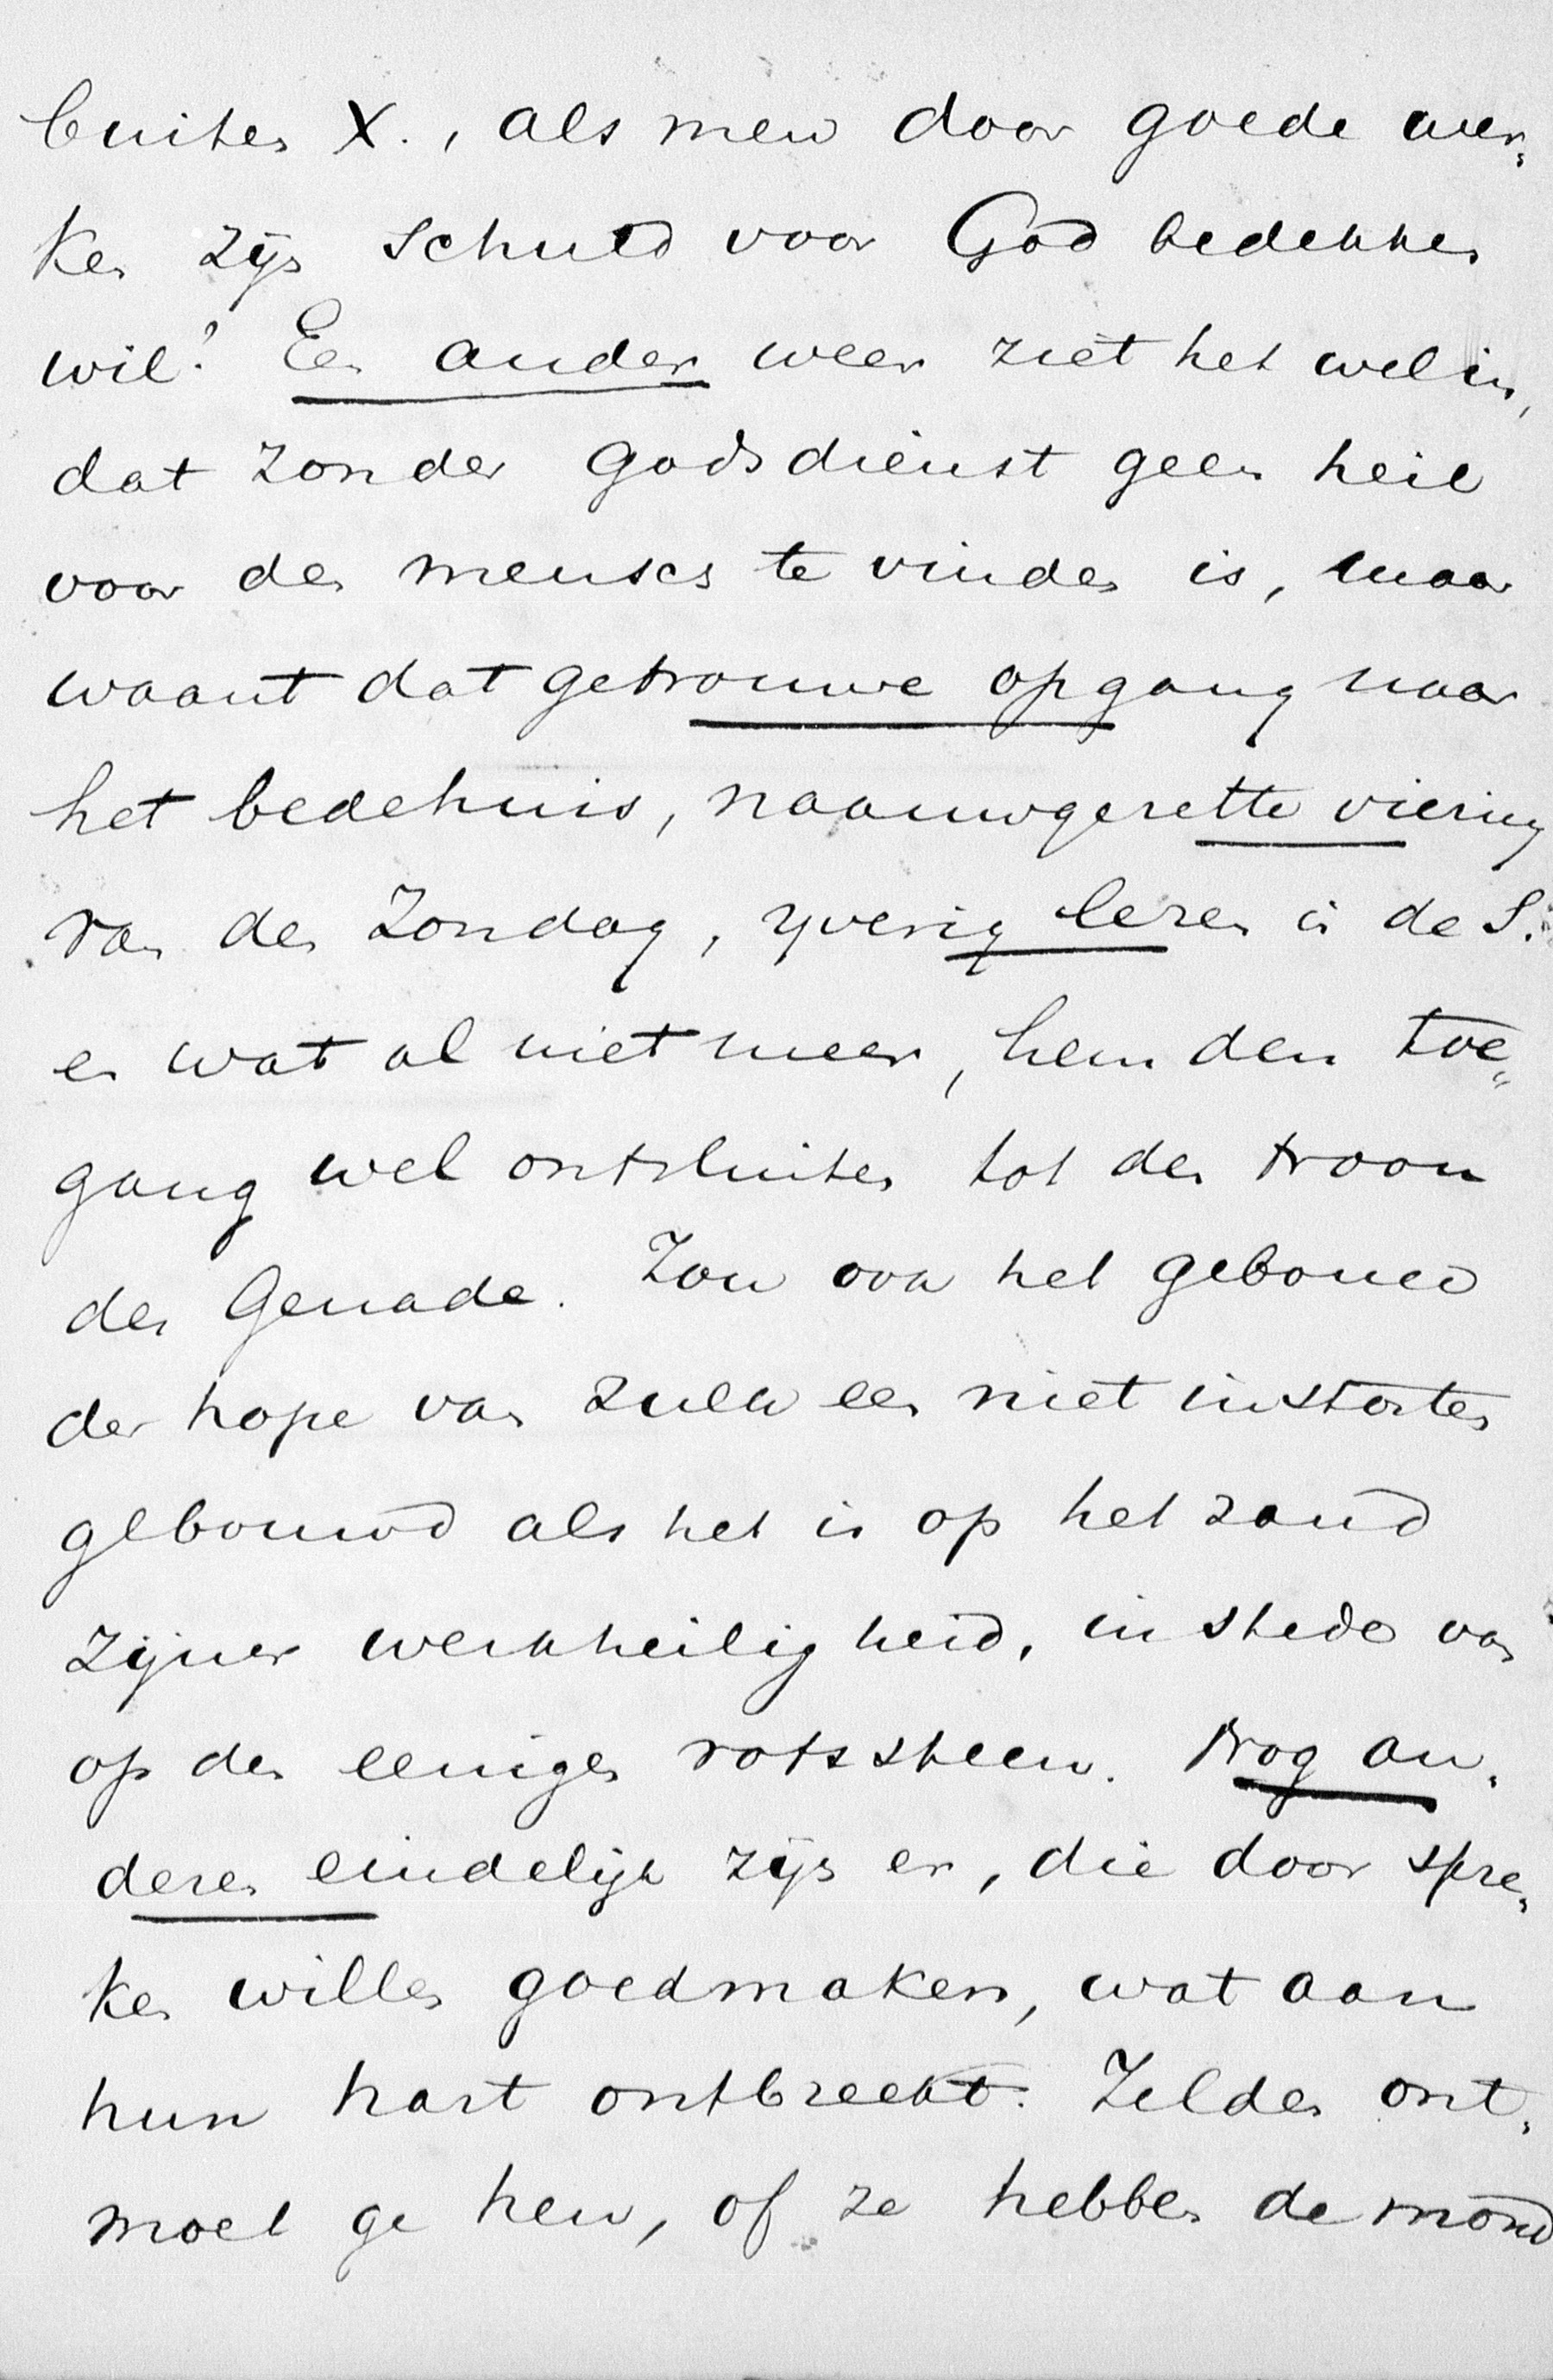 buiten X., als men door goede wer„
ken zijn schuld voor God bedekken
wil? Een ander weer ziet het wel in,
dat zonder godsdienst geen heil
voor den mensch te vinden is, maar
waant dat getrouwe opgang naar
het bedehuis, naauwgezette viering
van den Zondag, yverig lezen in de S.
en wat al niet meer, hem den toe„
gang wel ontsluiten tot den troon
der Genade. Zou ook het gebouw
der hope van zulk een niet instorten
gebouwd als het is op het zand
zijner werkheiligheid, in stede van
op den eenigen rotssteen. Nog an„
deren eindelijk zijn er, die door spre„
ken willen goedmaken, wat aan
hun hart ontbreekt. Zelden ont„
moet ge hen, of ze hebben de mond